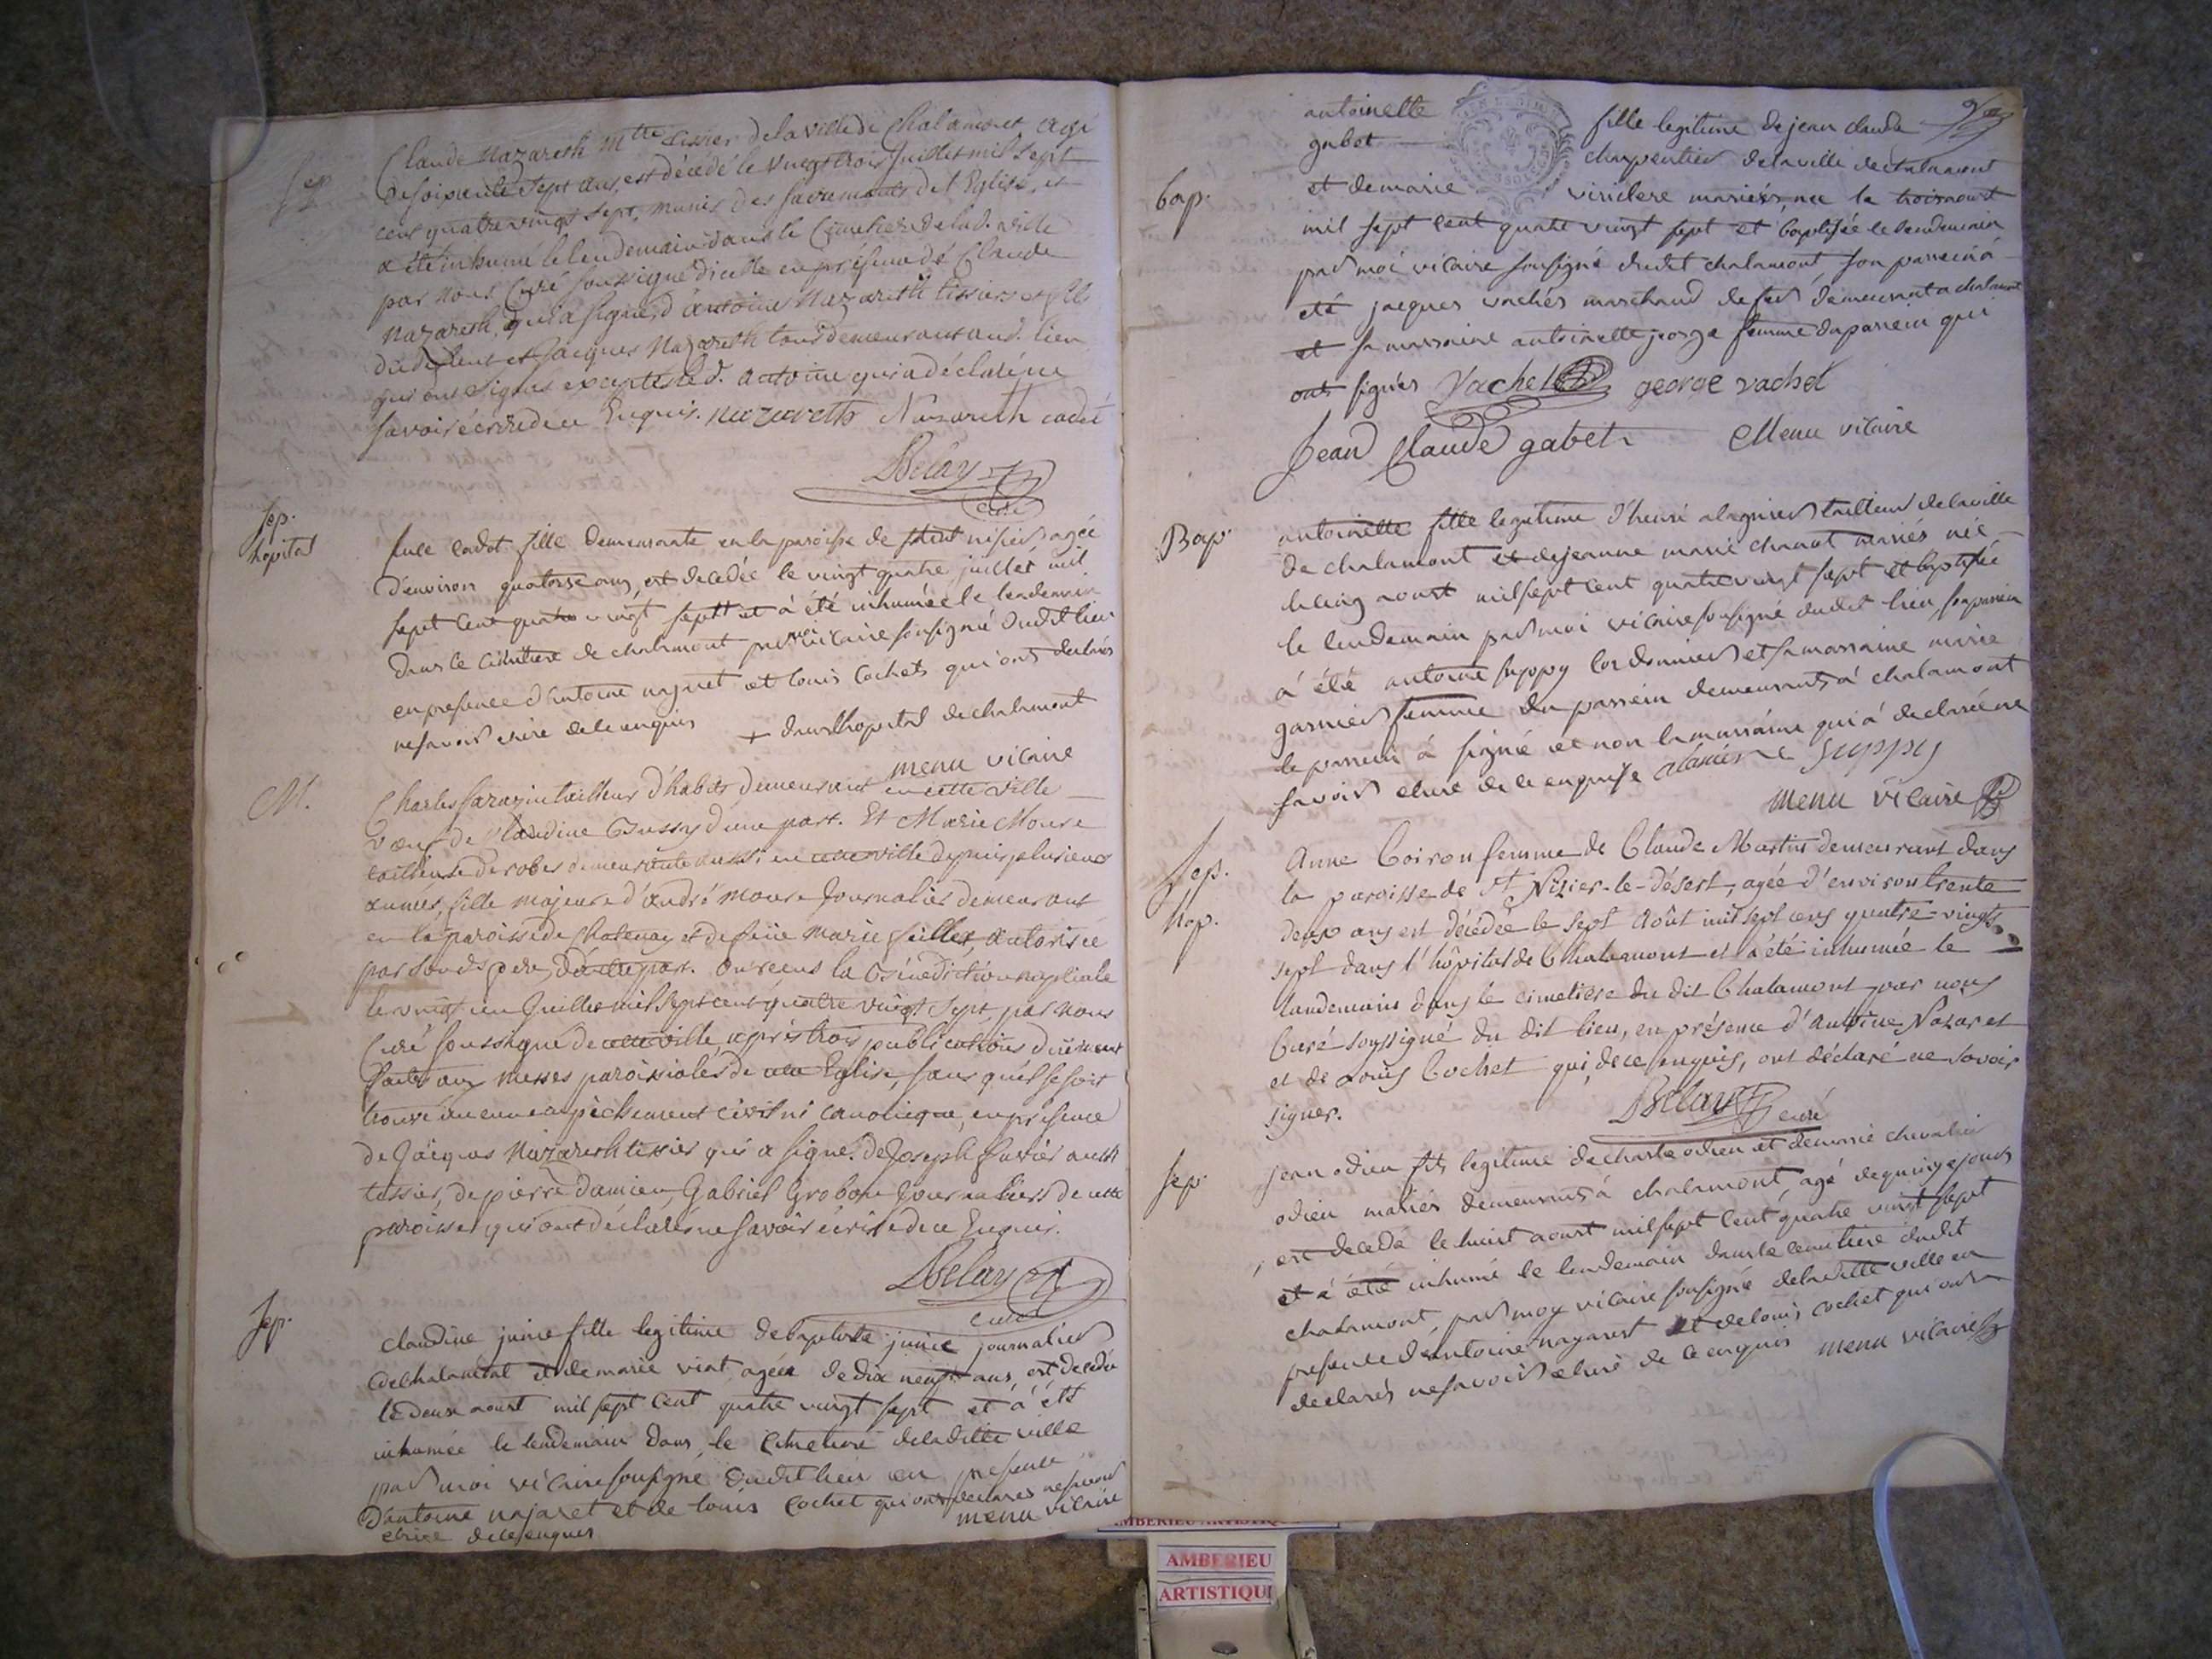 Sep.
Claude Nazareth Mtre tissier de la ville de Chalamont agé
de soixante sept ans, est décédé le vingt trois Juillet mil sept
cent quatre vingt sept, munis des sacrements de l'Eglise, et
a été inhumé le lendemain dans le Cimetier de lad. ville
par nous Curé soussigné d'icelle en présence de Claude
Nazareth, qui a signé, d'antoine Nazareth tissiers
du défunt et Jacques Nazareth tous demeurant aud. lieu
qui ont signés excepté led. antoine qui a déclaré ne
savoir écrire de ce Enquis. nazareth Nazareth cadet
Belay
curé
Sep.
hopital
cadot fille demeurante en la paroisse de saint nisier agée
d'environ quatorse ans, est decedée le vingt quatre juillet mil
sept cent quatre vingt sept et à été inhumée le lendemain
dans le cimitiere de chalamont par moi vicaire sousigné dudit lieu
en presence d'antoine et louis cochets qui ont declarés
ne savoir ecrire de ce enquis + dans lhopital de chalamont
menu vicaire
M.
Charles sarazin tailleur d'habits demeurant en cette ville
vœuf de Claudine d'une part. Et Marie Moure
tailleuse de robes demeurante aussi en cette ville depuis plusieurs
années, fille majeure d'andré moure Journalier demeurant
en la paroisse de Chatenay et de feüe marie fillet, autorisée
par sond. pere, d'autre part. ont reçus la Bénédiction nuptiale
le vingt un Juillet mil sept cent quatre vingt sept, par nous
Curé soussigné de cette ville, après trois publications duëment
faites aux messes paroissiales de cette Eglise, sans qu'il se soit
trouvé aucun empêchement civil ni canonique, en présence
de Jacques Nazareth tissier qui a signé, de Joseph favier aussi
tissier, de pierre damien, Gabriel Grobon Journaliers de cette
paroisse, qui ont déclarés ne savoir écrire de ce Enquis.
Belay
curé
Sep.
claudine juine fille legitime de baptiste juine journalier
de chalamont et de marie viat, agée de dix neuf ans, est decedée
le deux aoust mil sept cent quatre vingt sept et à été
inhumée le lendemain dans le cimetiere de ladite ville
par moi vicaire sousigné dudit lieu en presence
d'antoine najaret et de louis cochet qui ont declares ne savoir
ecrire de ce enques menu vicaire
bap.
antoinette fille legitime de jean claude
gabet charpentier de la ville de chalamont
et de marie mariés, née le trois aoust
mil sept cent quatre vingt sept et baptisée le lendemain
par moi vicaire sousigné dudit chalamont, son parrein à
été jacques vachés marchand de fer demeurant a chalamont
et sa marraine antoinette jeorge femme du parrein qui
ont signés Vachet george vachet
Jean Claude gabet Menu vicaire
Bap.
antoinette fille legitime d'henri alagnier tailleur de la ville
de chalamont et de jeanne marie chanot mariés née
le cinq aoust mil sept cent quatre vingt sept et baptisée
le lendemain par moi vicaire sousigné dudit lieu, son parrein
à été antoine suppy cordonnier et sa marraine marie
garnier femme du parrein demeurants à chalamont
le parrein à signé et non la marraine qui à declarée ne
savoir ecrire de ce enquise alanier suppy
menu vicaire
Sep.
hop.
Anne Coiron femme de Claude Martin demeurant dans
la paroisse de St Nizier-le-désert, agée d'environ trente
deux ans est décédée le sept Août mil sept cens quatre-vingts
sept dans l'hôpital de Chalamont et a été inhumée le
landemain dans le cimetiere du dit Chalamont par nous
Curé soussigné du dit lieu, en présence d'Antoine Nazaret
et de Louis Cochet qui, de ce enquis, ont déclaré ne savoir
signer.
Belay curé
Sep.
jean odieu fils legitime de charle odieu et de marie chevalier
odieu mariés demeurants à chalamont, agé de quinze jours
, est decedé le huit aoust mil sept cent quatre vingt sept
et à été inhumé le lendemain dans le cemitiere dudit
chalamont, par moy vicaire sousigné de la ditte ville en
presence d'antoine nazaret et de louis cochet qui ont
declarés ne savoir ecrire de ce enquis menu vicaire
AMBERIEU ARTISTIQUE
AMBERIEU
ARTISTIQU